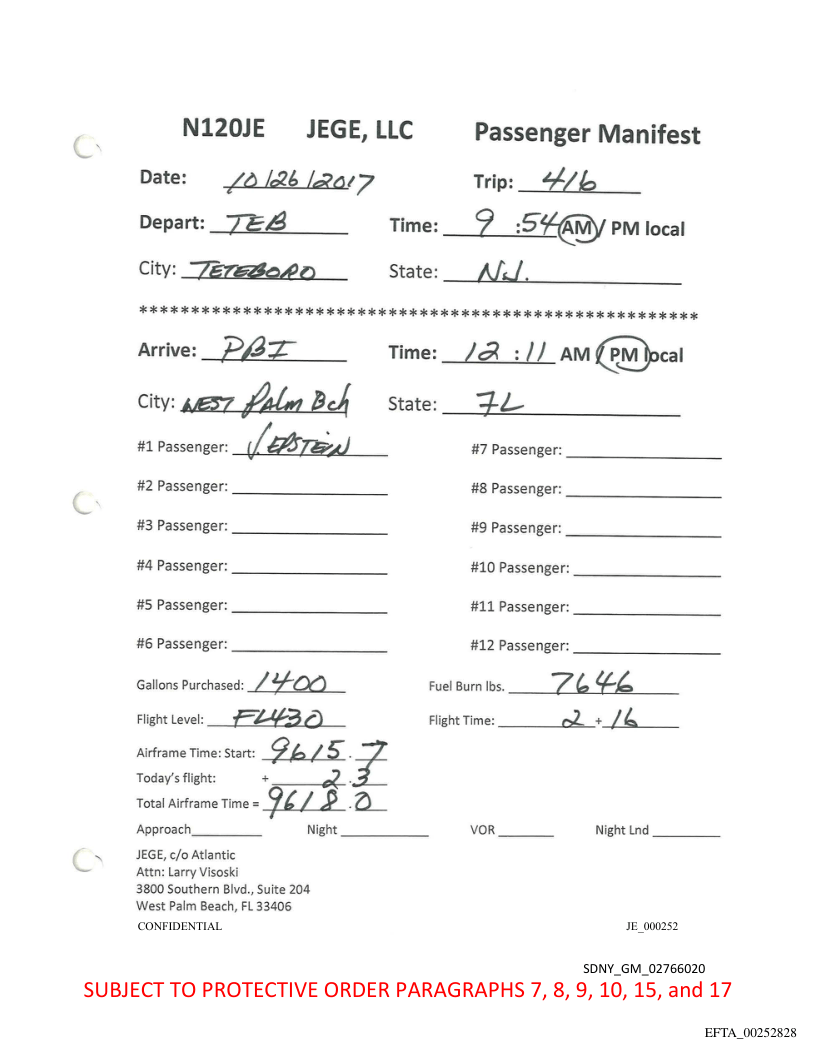 N120JE JEGE, LLC Passenger Manifest
Date: 10/26/2017 Trip: 416
Depart: TEB Time: 9 :54 AM / PM local
City: TETEBORO State: N.J.
*******************************************************
Arrive: PBI Time: 12 :11 AM / PM local
City: WEST Palm Bch State: FL
#1 Passenger: J. EPSTEIN #7 Passenger:
#2 Passenger: #8 Passenger:
#3 Passenger: #9 Passenger:
#4 Passenger: #10 Passenger:
#5 Passenger: #11 Passenger:
#6 Passenger: #12 Passenger:
Gallons Purchased: 1400 Fuel Burn lbs. 7646
Flight Level: FL430 Flight Time: 2 + 16
Airframe Time: Start: 9615.7
Today's flight: + 2.3
Total Airframe Time = 9618.0
Approach Night VOR Night Lnd
JEGE, c/o Atlantic
Attn: Larry Visoski
3800 Southern Blvd., Suite 204
West Palm Beach, FL 33406
CONFIDENTIAL JE_000252
SDNY_GM_02766020
SUBJECT TO PROTECTIVE ORDER PARAGRAPHS 7, 8, 9, 10, 15, and 17
EFTA_00252828